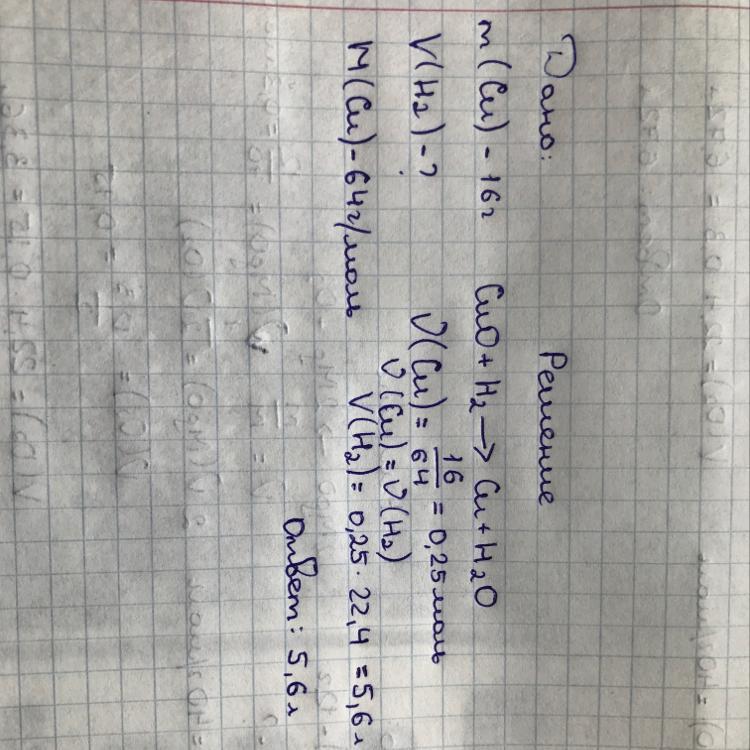 Дано:
m(Cu) - 16г
V(H₂) - ?
M(Cu) - 64г/моль
Решение
CuO + H₂ → Cu + H₂O
ν(Cu) = 16/64 = 0,25 моль
ν(Cu) = ν(H₂)
V(H₂) = 0,25 · 22,4 = 5,6 л
Ответ: 5,6 л